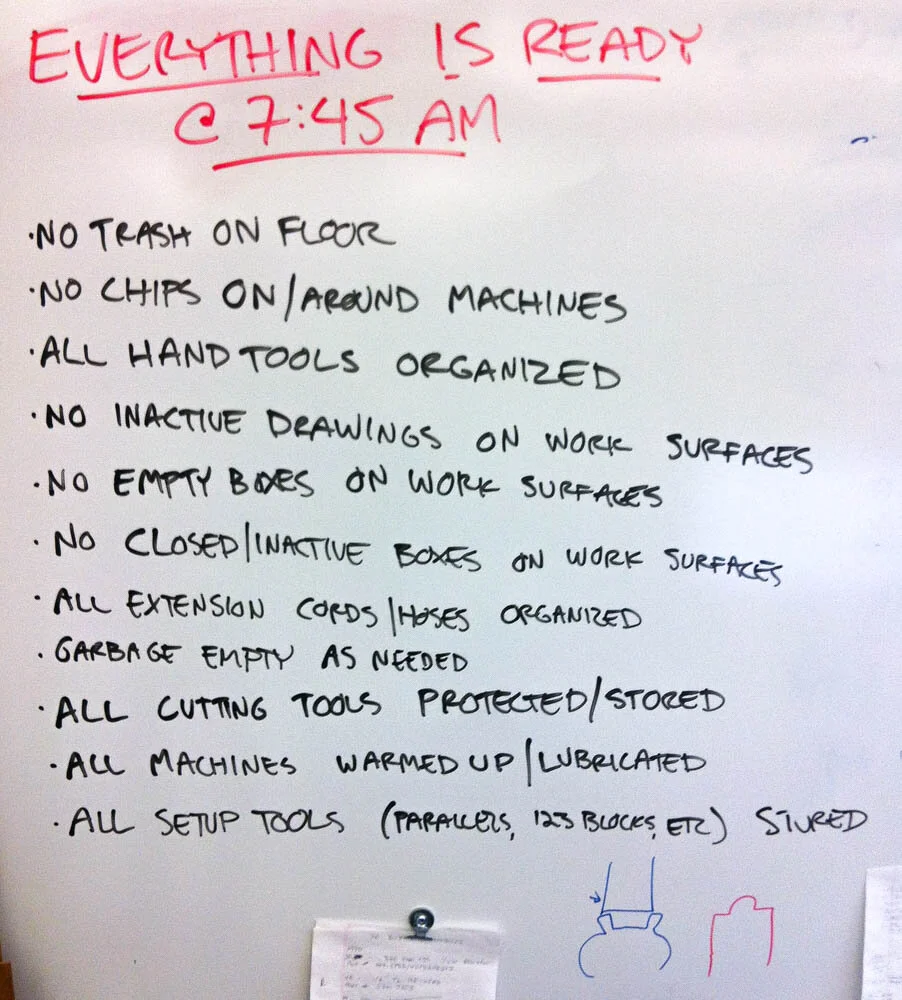 EVERYTHING IS READY
@ 7:45 AM
·NO TRASH ON FLOOR
·NO CHIPS ON/AROUND MACHINES
·ALL HAND TOOLS ORGANIZED
·NO INACTIVE DRAWINGS ON WORK SURFACES
·NO EMPTY BOXES ON WORK SURFACES
·NO CLOSED/INACTIVE BOXES ON WORK SURFACES
·ALL EXTENSION CORDS/HOSES ORGANIZED
·GARBAGE EMPTY AS NEEDED
·ALL CUTTING TOOLS PROTECTED/STORED
·ALL MACHINES WARMED UP/LUBRICATED
·ALL SETUP TOOLS (PARALLELS, 123 BLOCKS, ETC) STORED